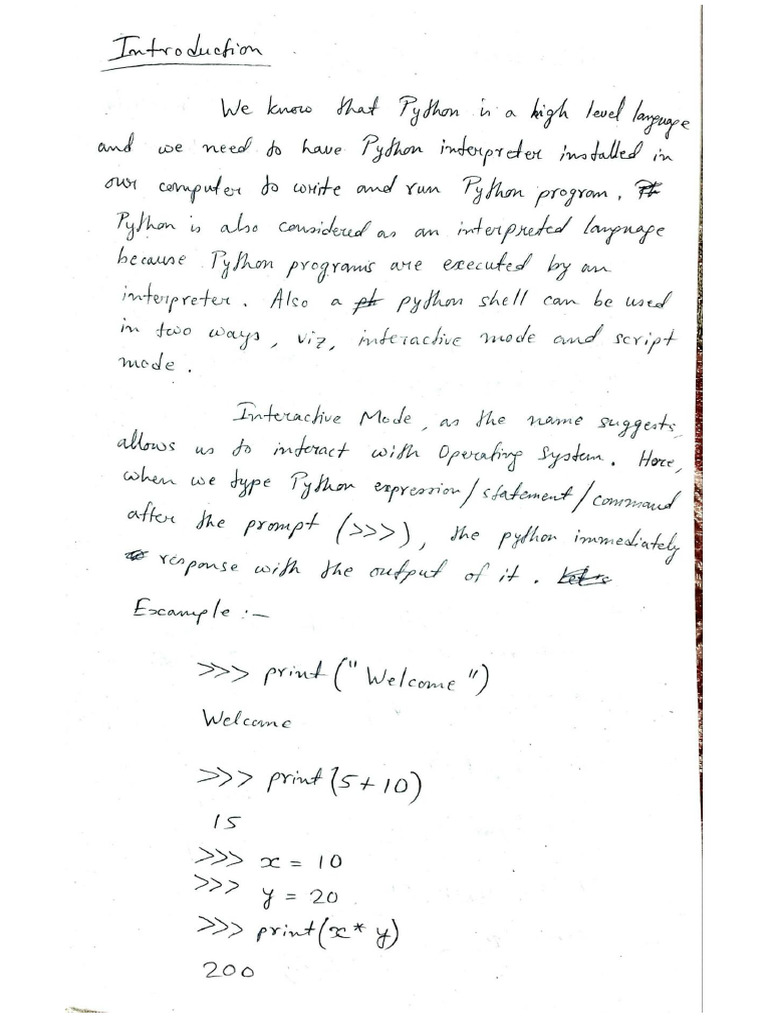 Introduction
We know that Python is a high level language
and we need to have Python interpreter installed in
our computer to write and run Python program.
Python is also considered as an interpreted language
because Python programs are executed by an
interpreter. Also a python shell can be used
in two ways, viz, interactive mode and script
mode.
Interactive Mode, as the name suggests,
allows us to interact with Operating System. Here,
when we type Python expression/statement/command
after the prompt (>>>), the python immediately
response with the output of it.
Example :-
>>> print("Welcome")
Welcome
>>> print(5+10)
15
>>> x = 10
>>> y = 20
>>> print(x* y)
200